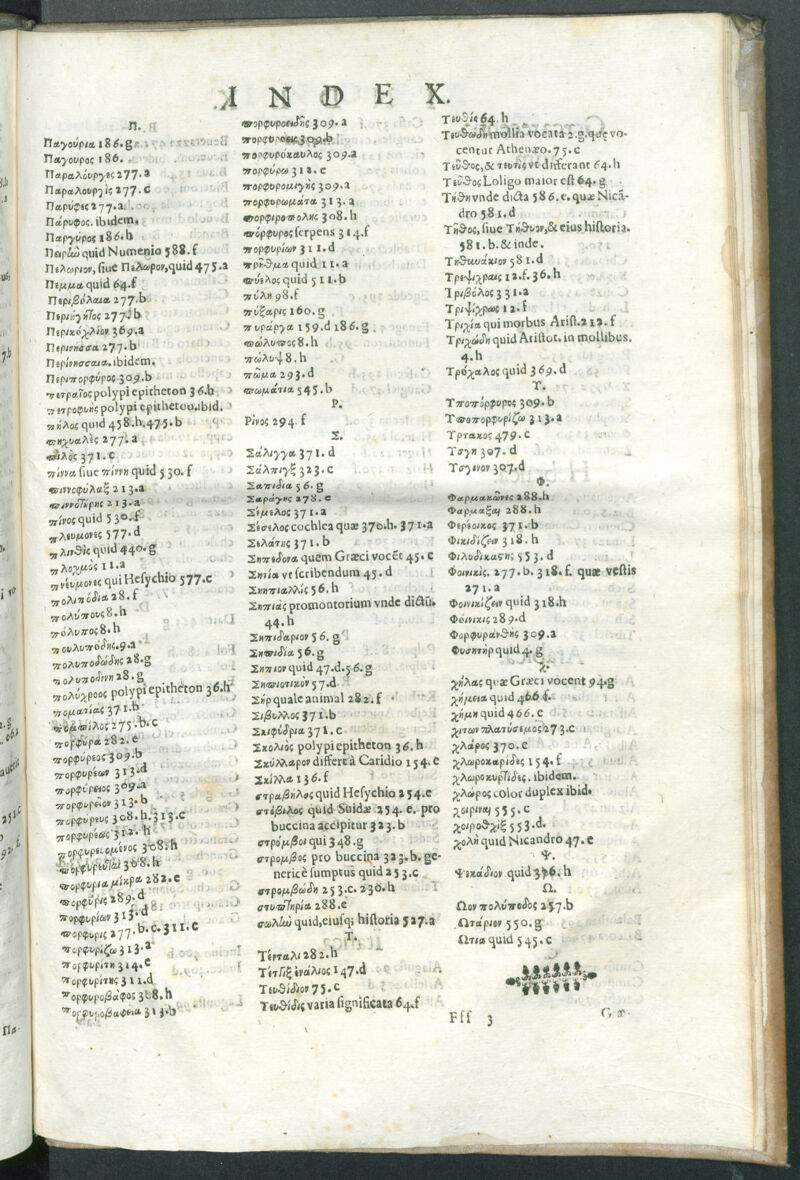 INDEX.
Π.
Παγούρια 186.g
Παγουρος 186.
Παραλόυργες 277.a
Παραλουργὶς 277.c
Παρύφες 277.a
Πάρυφος. ibidem.
Παργύρος 186.h
quid Numenio 588.f
Πελωριον, siue Πελωρον, quid 475.a
Πεμμα quid 64.f
Περιβόλαια 277.b
Περιηγῆτος 277.b
Περικόχλιον 369.a
Περινήσσα 277.b
Περίνησσαια. ibidem.
Περιπορφύρος 309.b
πετραῖος polypi epitheton 36.h
πετροφυης polypi epitheton, ibid.
πήλος quid 458.h. 475.b
πηχυαλὲς 277.a
πιλὸς 371.c
πίννα siue πίννη quid 530.f
πιννοφύλαξ 213.a
πιννοτήρης 213.a
πίνος quid 530.f
πλευμονες 577.d
πλινθὶς quid 440.g
πλοχμός 11.a
πνέυμονες qui Hesychio 577.c
πολιπόδια 28.f
πολύπους 8.h
πόλυπος 8.h
πουλυπόδης. 9.a
πολυποδώδης 28.g
πολυποδίνη 28.g
πολύχροος polypi epitheton 36.h
ποματίας 371.b
πομπίλος 275.b.c
πορφύρα 282.e
πορφύρεος 309.b
πορφυρέων 313.d
πορφύρειος 309.a
πορφυρεῖον 313.b
πορφυρεὺς 308.h. 313.c
πορφυρέως 312.h
πορφυρευομένος 308.h
πορφυρευταὶ 308.h
πορφυρια μίκρα 282.e
πορφυρὶς 289.d
πορφυρίων 313.d
πορφυρις 277.b.c. 311.c
πορφυρίζω 313.a
πορφυρίτη 314.e
πορφυρίτης 311.d
πορφυροβάφος 308.h
πορφυροβαφεια 313.b
πορφυροειδὴς 309.a
πορφυρόεις 309.b
πορφυρόκαυλος 309.a
πορφύρω 312.e
πορφυρομιγὴς 309.a
πορφυρωμάτα 313.a
πορφιροπολης 308.h
πόρφυρος serpens 314.f
πορφυρίων 311.d
πρῆθμα quid 11.a
πύελος quid 511.b
πύλη 98.f
πύξαρις 160.g
πυράργα 159.d 186.g
πώλυπος 8.h
πώλυψ 8.h
πῶμα 293.d
πωμάτια 545.b
Ρ.
Ρίνος 294.f
Σ.
Σάλιγγα 371.d
Σάλπιγξ 323.c
Σαπιδια 56.g
Σαράγης 278.e
Σέμελος 371.a
Σέσελος cochlea quæ 370.h. 371.a
Σελάτης 371.b
Σηπεδονα quem Græci vocẽt 45.c
Σηπία vt scribendum 45.d
Σηπιαλλὶς 56.h
Σηπιὰς promontorium vnde dictũ.
44.h
Σηπιδαριον 56.g
Σηπιδία 56.g
Σηπιον quid 47.d. 56.g
Σηπιοτικόν 57.d
Σὴρ quale animal 282.f
Σιβυλλος 371.b
Σκιφύδρια 371.c
Σκολιὸς polypi epitheton 36.h
Σκύλλαρον differt à Caridio 154.e
Σκίλλα 136.f
στραβήλος quid Hesychio 254.e
στόβιλος quid Suidæ 254.e. pro
buccina accipitur 323.b
στρόμβοι qui 348.g
στρομβος pro buccina 323.b. ge-
nericè sumptus quid 253.c
στρομβώδη 253.c. 230.h
στυπτηρία 288.e
σωλὼ quid, eiusq; historia 527.a
Τ.
Τένταλι 282.h
Τέττιξ ἐνάλιος 147.d
Τευθίδιον 75.c
Τευθίδις varia significata 64.f
Τευθίς 64.h
Τευθώδη mollia vocata 2.g. que vo-
centur Athenæo. 75.c
Τεῦθος, & τευτις vt differant 64.h
Τεῦθος Loligo maior est 64.g
Τήθη vnde dicta 586.e. quæ Nicã-
dro 581.d
Τῆθος, siue Τήθυον, & eius historia.
581.b. & inde.
Τηθυνάκιον 581.d
Τρεψίχραις 12.f. 36.h
Τριβόλος 331.a
Τριψίχρως 12.f
Τριχία qui morbus Arist. 212.f
Τριχώδη quid Aristot. in mollibus.
4.h
Τρόχαλος quid 369.d
Υ.
Υποπόρφυρος 309.b
Υποπορφυρίζω 313.a
Υρτακος 479.c
Υσγη 307.d
Υσγινον 307.d
Φ.
Φαρμακῶνες 288.h
Φαρμαξαι 288.h
Φερέοικος 371.b
Φικιδίζειν 318.h
Φιλυδικαστὴς 553.d
Φοινικὶς. 277.b. 318.f. quæ vestis
271.a
Φοινικίζειν quid 318.h
Φόινικις 289.d
Φορφυρανθὴς 309.a
Φυσητὴρ quid 4.g
Χ.
χήλας quæ Græci vocent 94.g
χήμεια quid 466.f.
χήμη quid 466.e
χιτων πλατύσεμος 273.c
χλάρος 370.e
χλωροκαρίδες 154.f
χλωροκυρτίδες. ibidem.
χλῶρος color duplex ibid.
χοιρίναι 555.c
χοιροθλὶξ 553.d.
χολὴ quid Nicandro 47.e
Ψ.
Ψεκάδιον quid 376.h
Ω.
Ωον πολύποδος 257.b
Ωτάριον 550.g
Ωτια quid 545.c
Fff 3
Gæ-